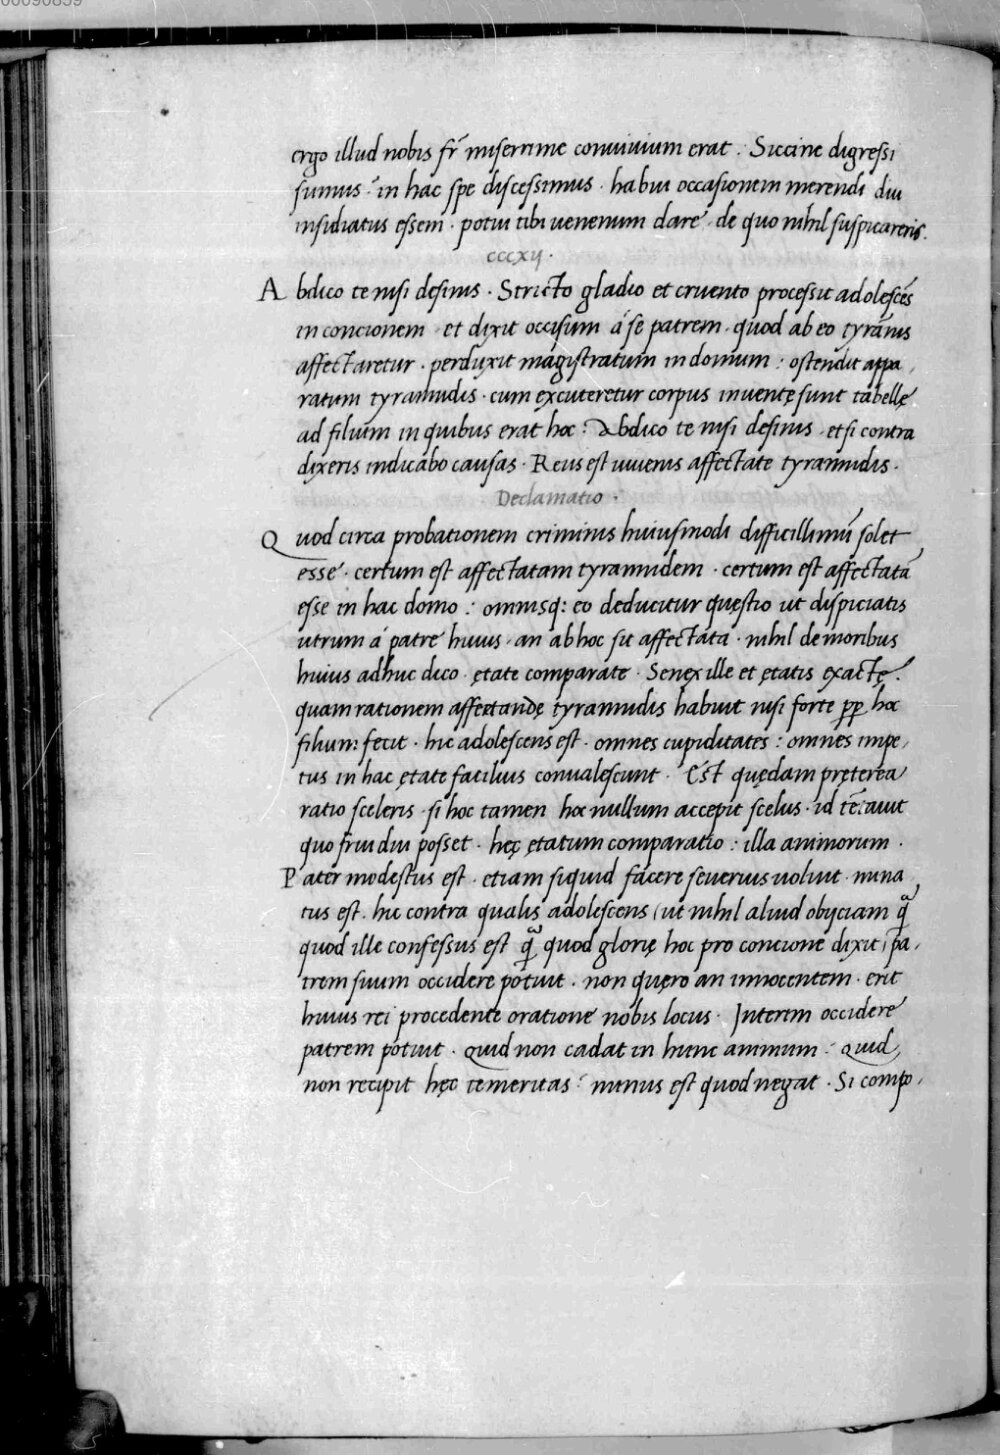 ergo illud nobis fr̄ miserrime conuiuium erat . Siccine digressi
sumus : in hac spe discessimus . habui occasionem merendi diu
insidiatus essem . potui tibi uenenum dare . de quo nihil suspicareris .
cccxij .
Abdico te nisi desinis . Stricto gladio et cruento processit adolescēs
in concionem . et dixit occisum á se patrem . quod ab eo tyrānis
affectaretur . perduxit magistratum in domum : ostendit appa,
ratum tyrannidis . cum excuteretur corpus inuentę sunt tabellę
ad filium in quibus erat hoc : Abdico te nisi desinis . et si contra
dixeris indicabo causas . Reus est iuuenis affectate tyrannidis .
Declamatio .
Quod circa probationem criminis huiusmodi difficillimū solet
esse . certum est affectatam tyrannidem . certum est affectatā
esse in hac domo : omnisq: eo deducitur quęstio ut dispiciatis
utrum á patre huius . an ab hoc sit affectata . nihil de moribus
huius adhuc dico . ętate comparate . Senex ille et ętatis exactę .
quam rationem affectandę tyrannidis habuit nisi forte pp̄ hoc
filium fecit . hic adolescens est . omnes cupiditates : omnes impe,
tus in hac ętate facilius conualescunt . Est quędam pręterea
ratio sceleris . si hoc tamen hoc nullum accepit scelus . id tētauit
quo frui diu posset . hęc ętatum comparatio : illa animorum .
Pater modestus est . etiam siquid facere seuerius uoluit . mina
tus est . hic contra qualis adolescens (ut nihil aliud obijciam q̄
quod ille confessus est q̄ quod glorię hoc pro concione dixit) pa,
trem suum occidere potuit . non quęro an innocentem . erit
huius rei procedente oratione nobis locus . Interim occidere
patrem potuit . Quid non cadat in hunc animum : Quid
non recipit hęc temeritas : minus est quod negat . Si compo,